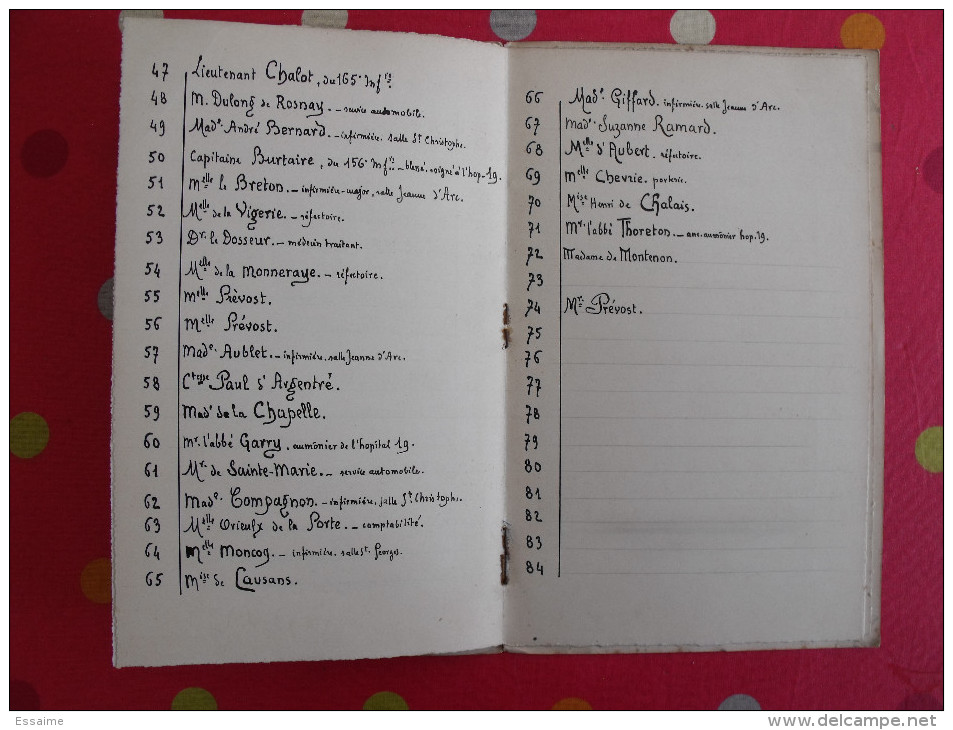 47 Lieutenant Chalot, du 165e Infie
48 M. Dulong de Rosnay. - service automobile.
49 Made André Bernard. - infirmière, salle St Christophe.
50 Capitaine Burtaire, du 156e Infie - blessé, soigné à l'hop. 19.
51 Melle le Breton. - infirmière-major, salle Jeanne d'Arc.
52 Melle de la Vigerie. - réfectoire.
53 Dr. le Dosseur. - médecin traitant.
54 Melle de la Monneraye. - réfectoire.
55 Melle Prévost.
56 Melle Prévost.
57 Made Aublet. - infirmière, salle Jeanne d'Arc.
58 Ctesse Paul d'Argentré.
59 Made de la Chapelle.
60 Mr. l'abbé Garry, aumônier de l'hopital 19.
61 Mr. de Sainte-Marie. - service automobile.
62 Made Compagnon. - infirmière, salle St Christophe.
63 Melle Orieulx de la Porte. - comptabilité.
64 Melle Moncoq. - infirmière, salle St. Georges.
65 Mise de Causans.
66 Made Giffard, infirmière, salle Jeanne d'Arc.
67 Made Suzanne Ramard.
68 Melle d'Aubert. réfectoire.
69 Melle Chevrie.
70 Mise Henri de Chalais.
71 Mr. l'abbé Thoreton. - anc. aumônier hop. 19.
72 Madame de Montenon.
73
74 Mr. Prévost.
75
76
77
78
79
80
81
82
83
84
Essaime
www.delcampe.net